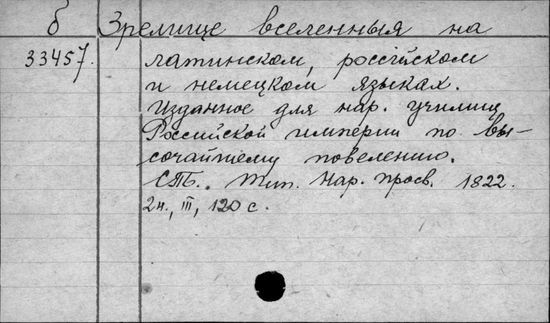 б Зрелище вселенныя на
33457. латинском, российском
и немецком языках.
Изданное для нар. училищ
Российской империи по вы-
сочайшему повелению.
СПб. Тип. Нар. просв. 1822.
2н., III, 120 с.